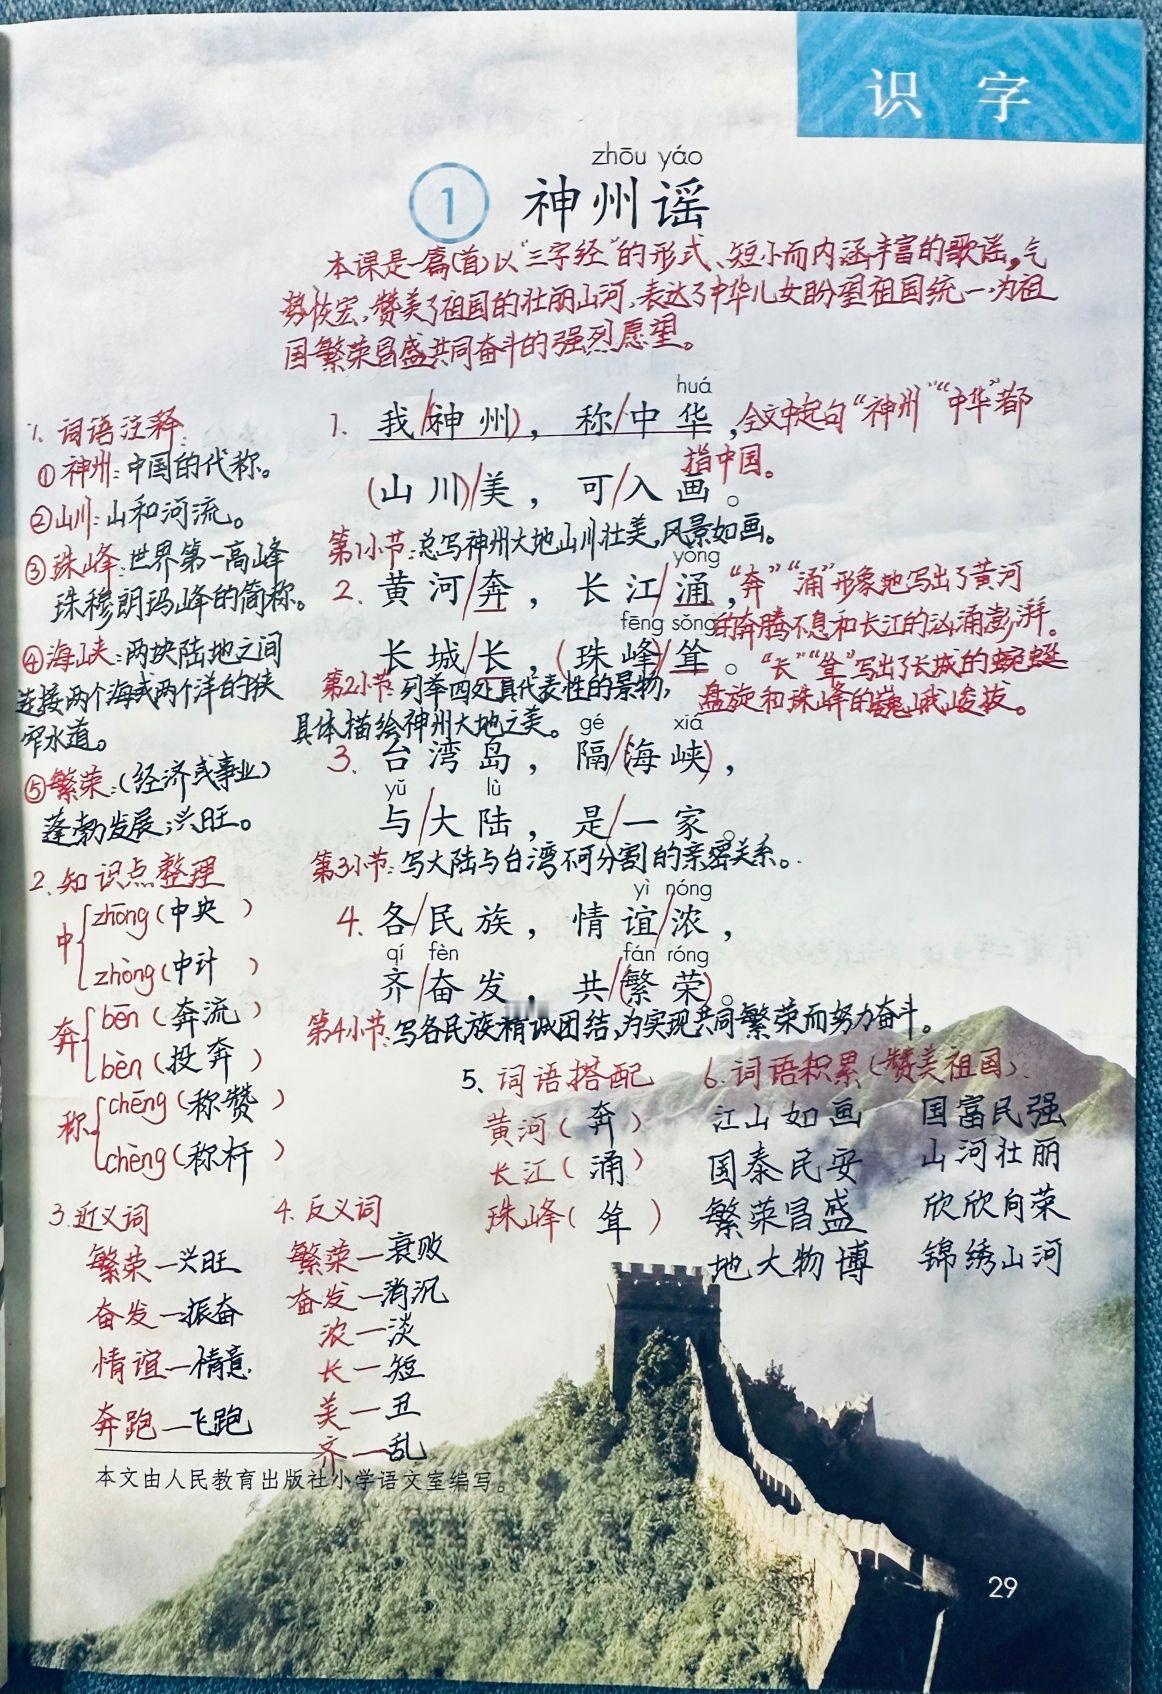 识 字
zhōu yáo
1 神州谣
本课是一篇(首)以“三字经”的形式、短小而内涵丰富的歌谣,气
势恢宏,赞美了祖国的壮丽山河,表达了中华儿女盼望祖国统一,为祖
国繁荣昌盛共同奋斗的强烈愿望。
huá
1. 我/(神州), 称/中华,
全文中起句“神州”“中华”都
指中国。
(山川)/美, 可/入画。
第1小节:总写神州大地山川壮美,风景如画。
yǒng
2. 黄河/奔, 长江/涌,
“奔”“涌”形象地写出了黄河
的奔腾不息和长江的汹涌澎湃。
fēng sǒng
长城/长,(珠峰)/耸。
“长”“耸”写出了长城的蜿蜒
盘旋和珠峰的巍峨峻拔。
第2小节:列举四处具代表性的景物,
具体描绘神州大地之美。
gé xiá
3. 台湾岛, 隔/(海峡),
yǔ lù
与/大陆, 是/一家。
第3小节:写大陆与台湾不可分割的亲密关系。
yì nóng
4. 各/民族, 情谊/浓,
qí fèn fán róng
齐/奋发, 共/(繁荣)。
第4小节:写各民族精诚团结,为实现共同繁荣而努力奋斗。
1. 词语注释:
①神州:中国的代称。
②山川:山和河流。
③珠峰:世界第一高峰
珠穆朗玛峰的简称。
④海峡:两块陆地之间
连接两个海或两个洋的狭
窄水道。
⑤繁荣:(经济或事业)
蓬勃发展;兴旺。
2. 知识点整理
中
zhōng(中央)
zhòng(中计)
奔
bēn(奔流)
bèn(投奔)
称
chēng(称赞)
chèng(称杆)
3.近义词
繁荣—兴旺
奋发—振奋
情谊—情意
奔跑—飞跑
4. 反义词
繁荣—衰败
奋发—消沉
浓—淡
长—短
美—丑
齐—乱
5、词语搭配
黄河(奔)
长江(涌)
珠峰(耸)
6.词语积累(赞美祖国)
江山如画 国富民强
国泰民安 山河壮丽
繁荣昌盛 欣欣向荣
地大物博 锦绣山河
本文由人民教育出版社小学语文室编写。
29